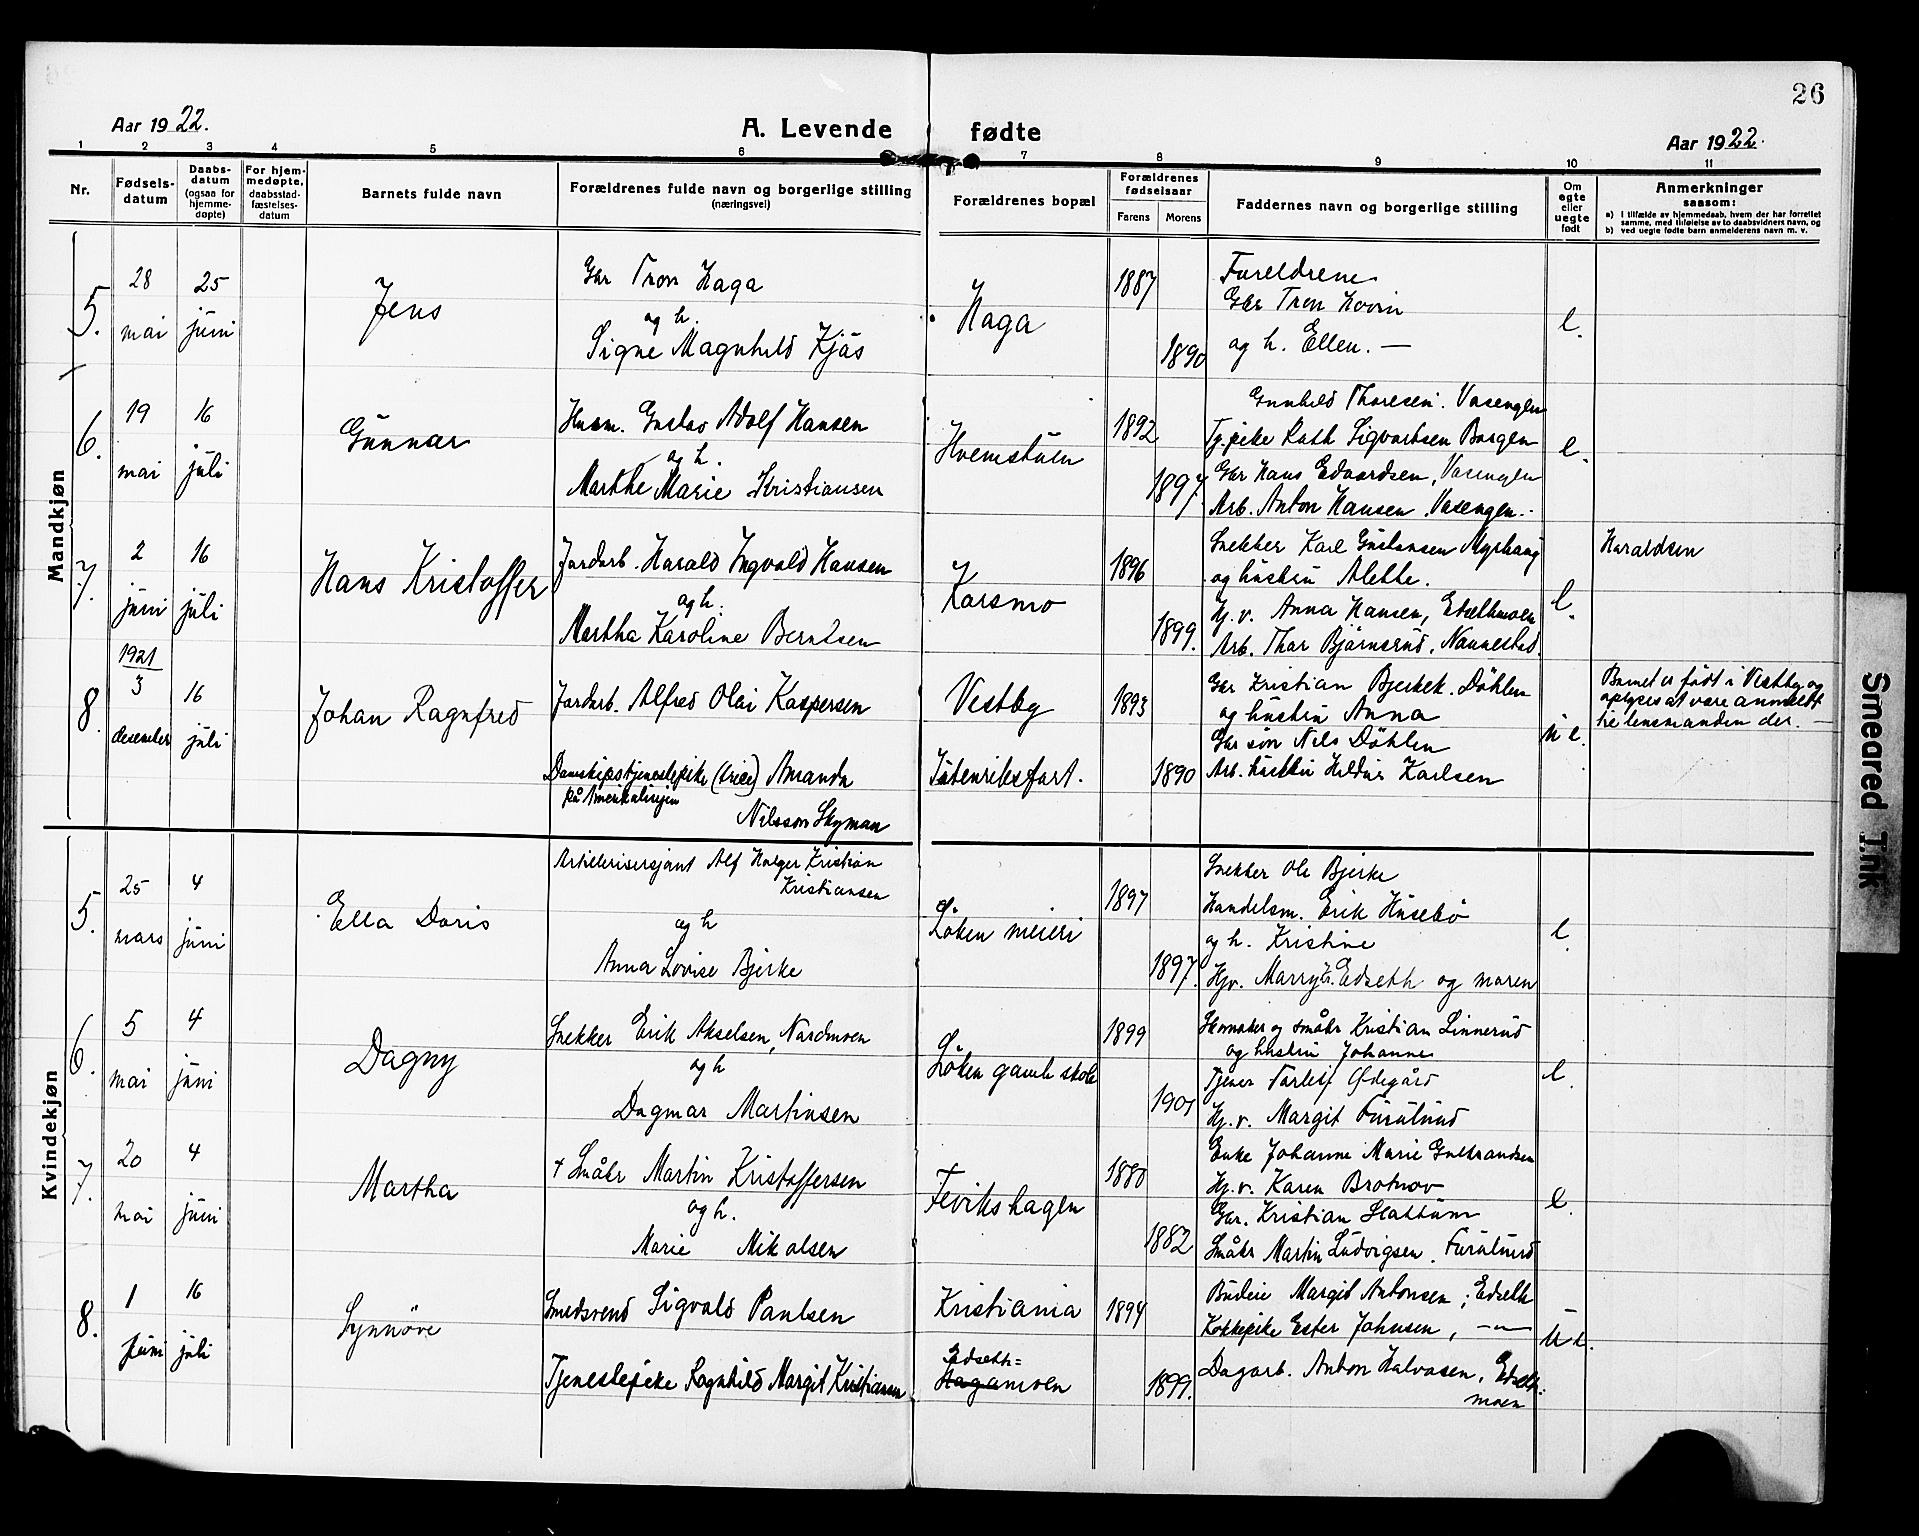 26
Aar 1922.
A. Levende fødte
Aar 1922.
1 2 3 4 5 6 7 8 9 10 11
Nr.
Fødsels-
datum
Daabs-
datum
(ogsaa for
hjemme-
døpte)
For hjem-
medøpte,
daabsstad-
fæstelses-
datum
Barnets fulde navn
Forældrenes fulde navn og borgerlige stilling
(næringsvei)
Forældrenes bopæl
Forældrenes
fødselsaar
Farens
Morens
Faddernes navn og borgerlige stilling
Om
egte
eller
uegte
født
Anmerkninger
saasom:
a) I tilfælde av hjemmedaab, hvem der har forrettet
samme, med tilføielse av to daabsvidners navn, og
b) ved uegte fødte barn anmelderens navn m. v.
Mandkjøn
5.
28
mai
25
juni
Jens
Gbr Tron Haga
og h.
Signe Magnhild Kjös
Haga
1887
1890
Foreldrene
Gbr Tron Hovin
og h. Ellen. —
e.
6.
19
mai
16
juli
Gunnar
Husm. Gustav Adolf Hansen
og h.
Marthe Marie Kristiansen
Hvemstuen
1892
1897.
Gunhild Thoresen. Vasengen
Tj.pike Ruth Sigvartsen Borgen
Gbr Hans Edvardsen, Vasengen
Arb. Anton Hansen. Vasengen.
e.
7.
2
juni
16
juli
Hans Kristoffer
Jordarb. Harald Ingvald Hansen
og h.
Martha Karoline Berntsen
Korsmo
1896
1899.
Snekker Karl Gustavsen Myrhaug
og hustru Alette.
Hj. v. Anna Hansen, Edsethmoen
Arb. Thor Björnerud, Nannestad.
e.
Haraldsen
8.
1921
3
desember
16
juli
Johan Ragnfred
Jordarb. Alfred Olai Kaspersen
Dampskipstjenestepike (trice) Amanda
på Amerikalinjen
Nilsson Skyman
Vestby
Utenriksfart.
1893
1890
Gbr Kristian Bjerkek. Döhlen
og hustru Anna
Gbr søn Nils Döhlen
Arb. hustru Hildur Karlsen
U e.
Barnet er født i Vestby og
oplyses at være anmeldt
til lensmanden der. —
Kvindekjøn
5.
25
mars
4
juni
Ella Doris
Artillerisersjant Alf Holger Kristian
Kristiansen
og h
Anna Lovise Bjerke
Löken meieri
1897
1897.
Snekker Ole Bjerke
Handelsm. Erik Husebö
og h. Kristine
Hjv. Marry K. Edseth og moren
e.
6.
5
mai
4
juni
Dagny
Snekker Erik Akselsen, Nordmoen
og h
Dagmar Martinsen
Löken gamle skole
1899
1901
Skomaker og småbr Kristian Linnerud
og hustru Johanne
Tjener Torleif Ødegård
Hj. v. Margit Furulund
e.
7.
20
mai
4
juni
Martha
+ Småbr Martin Kristoffersen
og h.
Marie Mikalsen
Fevikshagen
1880
1882
Enke Johanne Marie Gulbrandsen
Hj. v. Karen Brotnov
Gbr. Kristian Slattum
Småbr Martin Ludvigsen. Furulund
e.
8.
1
juni
16
juli
Synnöve
Smedsvend Sigvald Paulsen
Tjenestepike Ragnhild Margit Kristiansen
Kristiania
Edseth=
Hagamoen
1894
1899.
Budeie Margit Antonsen, Edseth
Kokkepike Ester Johnsen, —"—
Dagarb. Anton Halvorsen, Edseth-
moen
U e.
Smeared Ink